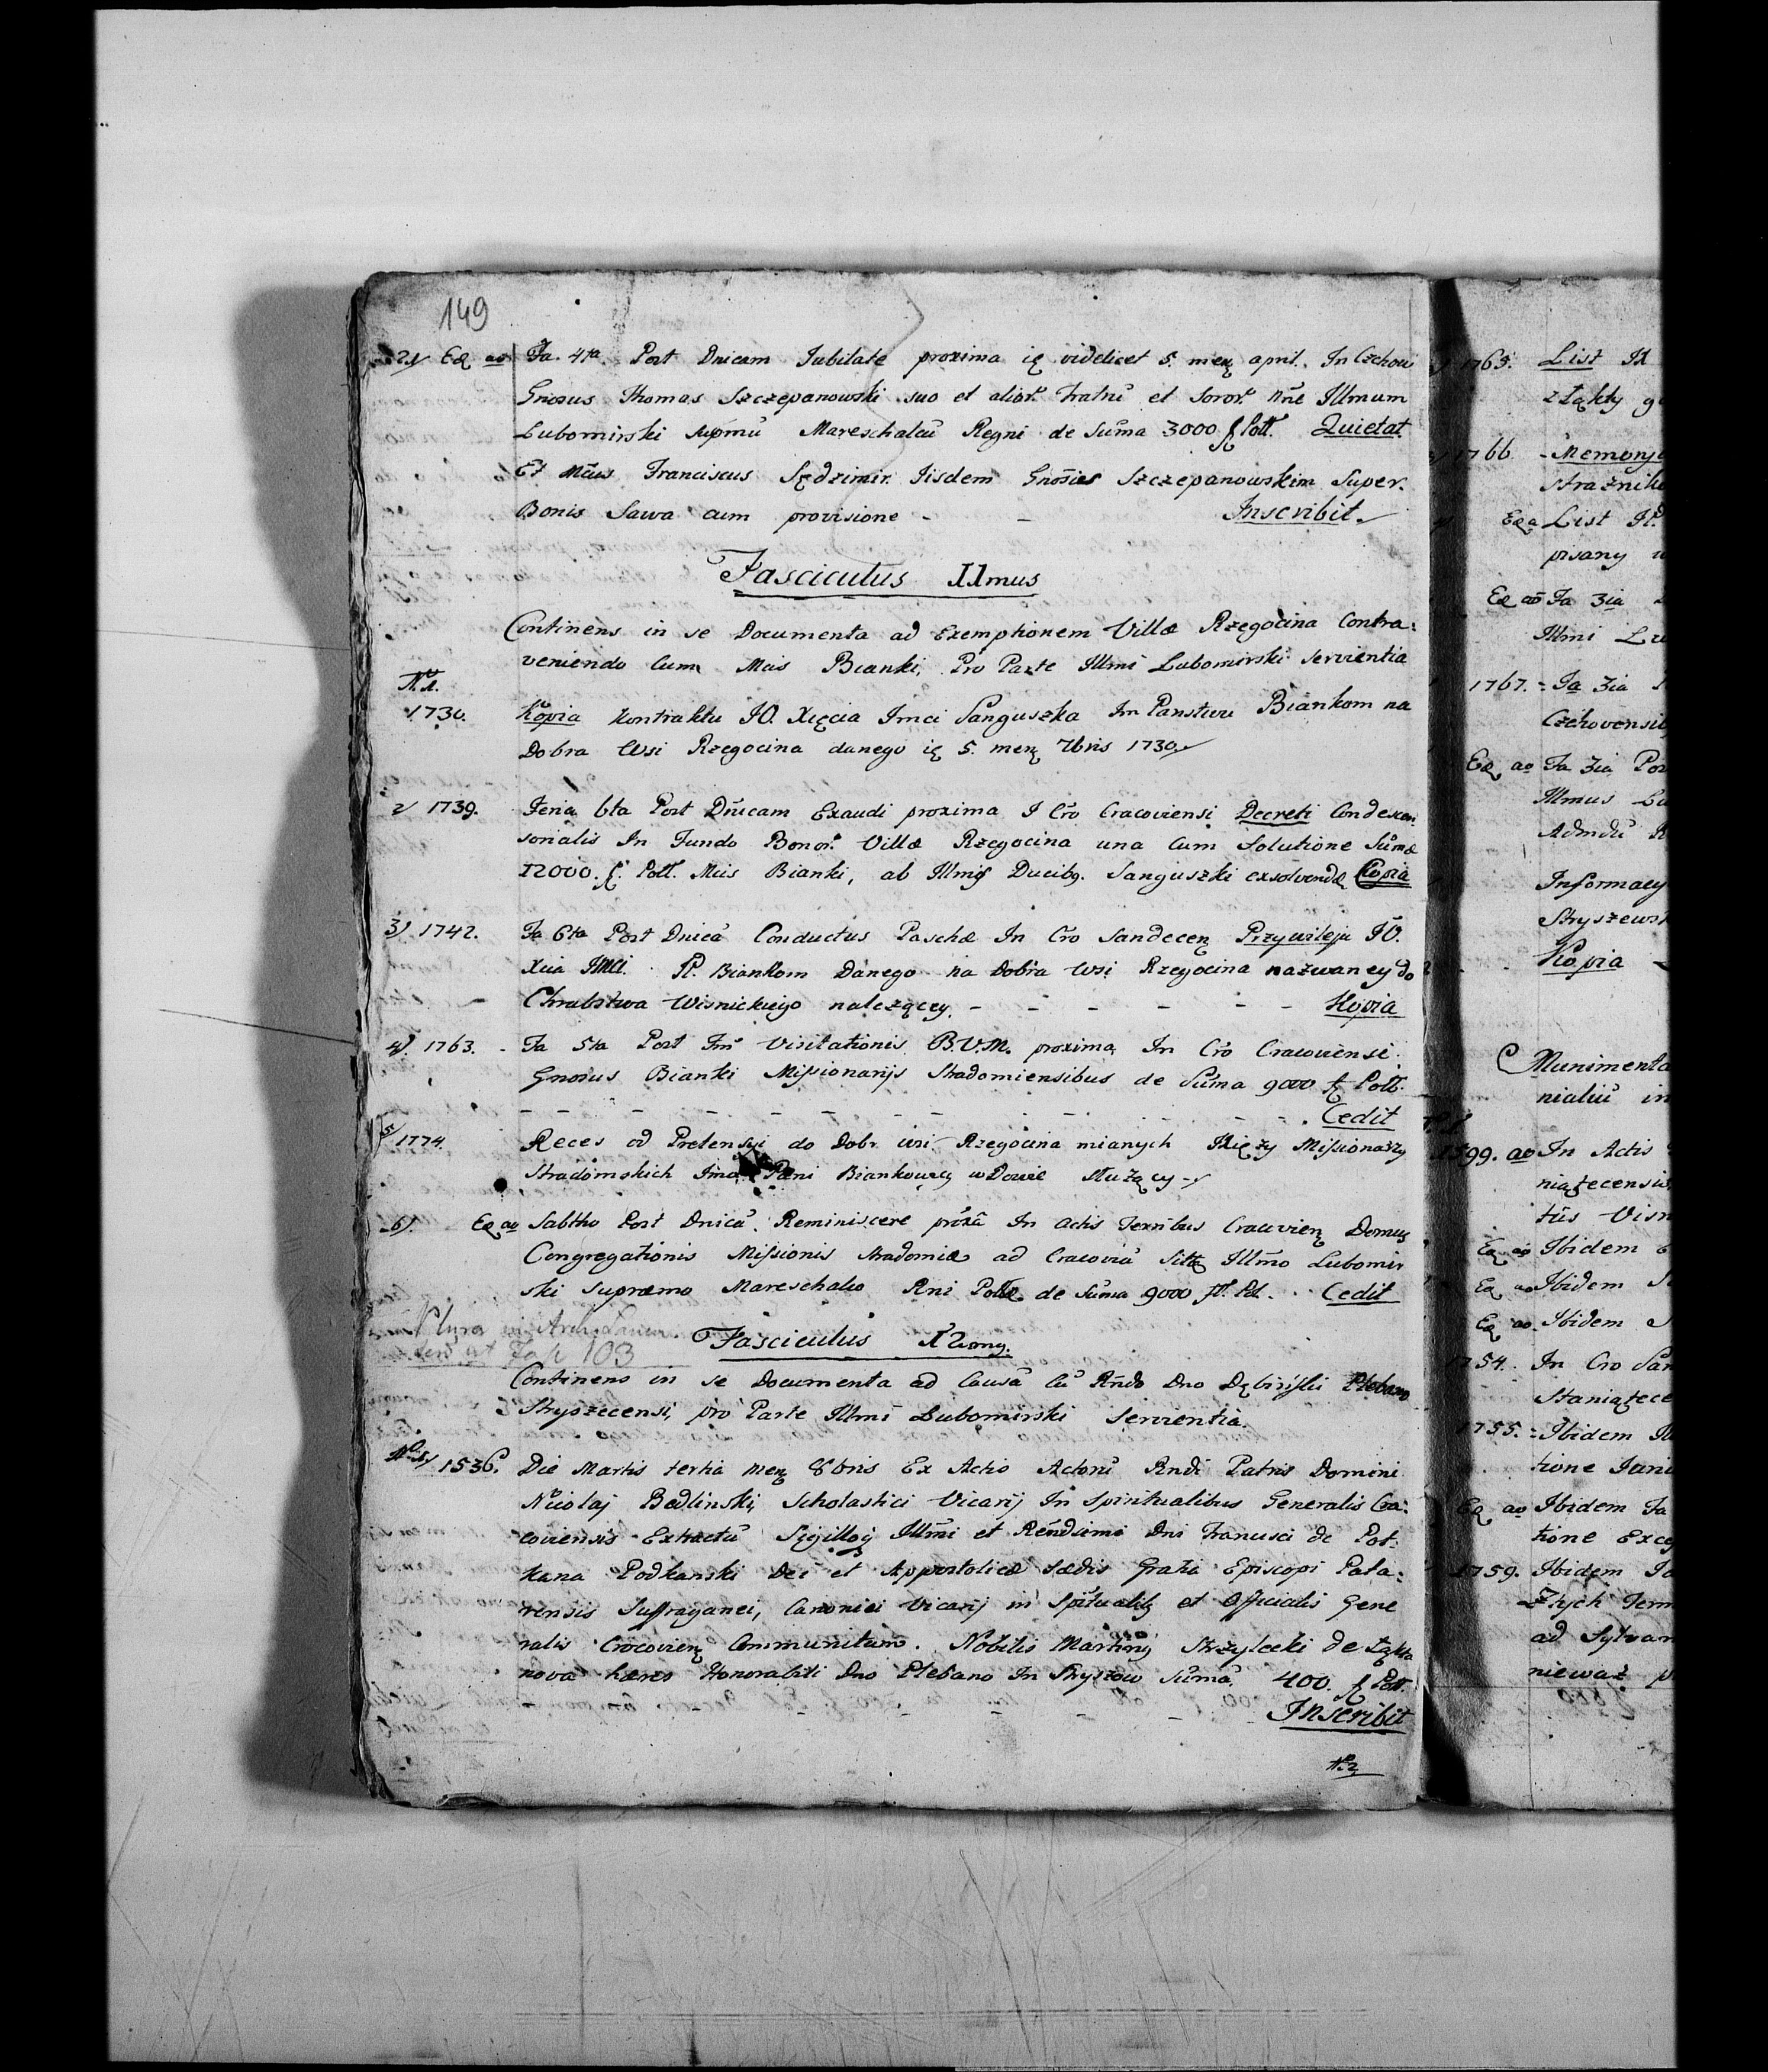 149
2) Eq ao Fa. 4ta Post Dnicam Jubilate proxima ię videlicet 5. menę april. In Czchow
Gnosus Thomas Szczepanowski suo et alior. Fratrū et Soror. nñe Illmum
Lubomirski supmū Mareschalcū Regni de Suma 3000 f Poll. Quietat
Et Mcus Franciscus Sędzimir Iisdem Gnosis Szczepanowskim Super
Bonis Sawa cum provisione - - Inscribit
Fasciculus 11mus
Continens in se Documenta ad Exemptionem Villæ Rzegocina Contra:
veniendo Cum Mcis Bianki, Pro Parte Illmi Lubomirski servientia
No 1.
1730. Kopia Kontraktu JO. Xięcia Imci Sanguszka Im Panstwu Biankom na
Dobra Wsi Rzegocina danego ię 5. menę 7bris 1730
2) 1739. Feria 6ta Post Dnicam Exaudi proxima I Cro Cracoviensi Decreti Condescen
sorialis In Fundo Bonor. Villæ Rzegocina una cum Solutione Sumæ
12000. f. Poll. Mcis Bianki, ab Illmis Ducibg. Sanguszki exsolvendæ Copia
3) 1742. Fa 6ta Post Dnicā Conductus Paschæ In Cro Sandecenę Przywileju JO.
Xcia IMci. P. Biankom Danego na Dobra Wsi Rzegocina nazwaney do
Chrabstwa Wisnickiego należącey. - - - - - - Kopia
4) 1763. - Fa 5ta Post Fm Visitationis B.V.M. proxima In Cro Cracoviensi
Gnosus Bianki Missionarijs Stradomiensibus de Suma 9000 f Poll.
- - - - - - - - - - Cedit
5) 1774. Reces od Pretensyi do Dobr wsi Rzegocina mianych Xięży Missionarzy
Stradomskich Imci Pani Biankowey wDowie służący
6) Eq ao Sabtho Post Dnicā Reminiscere proxā In Actis Terribus Cracovienę Domus
Congregationis Missionis Stradomiæ ad Cracoviā Sitæ Illmo Lubomir
ski Supremo Mareschalco Rni Poliæ de Suma 9000 fl. Pol. . . Cedit
Plura in Arch.
ut Fa p 103
Fasciculus 12mg.
Continens in se Documenta ad Causā Cū Rndo Dno Plebano
Stryszecensi, pro Parte Illmi Lubomirski Servientia.
No 1) 1536. Die Martis tertia menę 8bris Ex Actis Actorū Rndi Patris Domini
Nicolaj Bedlinski, Scholastici Vicarij In Spiritualibus Generalis Cra:
coviensis Extractū Illmi et Rendissmi Dni Francisci de Pot:
kana Podkanski Dei et Appostolicæ Sædis Gratia Episcopi Pata:
rensis Suffraganei, Canonici Vicarij in Spiritualibg et Officialis Gene
ralis Cracovienę Communitum. Nobilis Martinus Strzylecki de Łąkta
nova hæres Honorabili Dno Plebano In Stryszow Sumā 400. f Poll.
- - - - - - Inscribit
No 2
1765. List
złąkty
1766 - Memoryał
Strażnik
Eq a List
pisany
Eq ao Fa 3ia
Illmi Lu
1767. - Fa 3ia
Czchovensi
Eq ao Fa 3ia Post
Illmus Lu
Admdū
Informacy
Stryszews
Kopia
Munimenta
nialiū in
1599. ao In Actis
niątecensis
tūs Visn
Eq ao Ibidem
Eq ao Ibidem
Eq ao Ibidem
1754. In Cro San
Staniątece
1755. - Ibidem
tione Jani
Eq ao Ibidem Fa
tione Exce
1759. Ibidem
Złych
ad Sylvan
nieważ